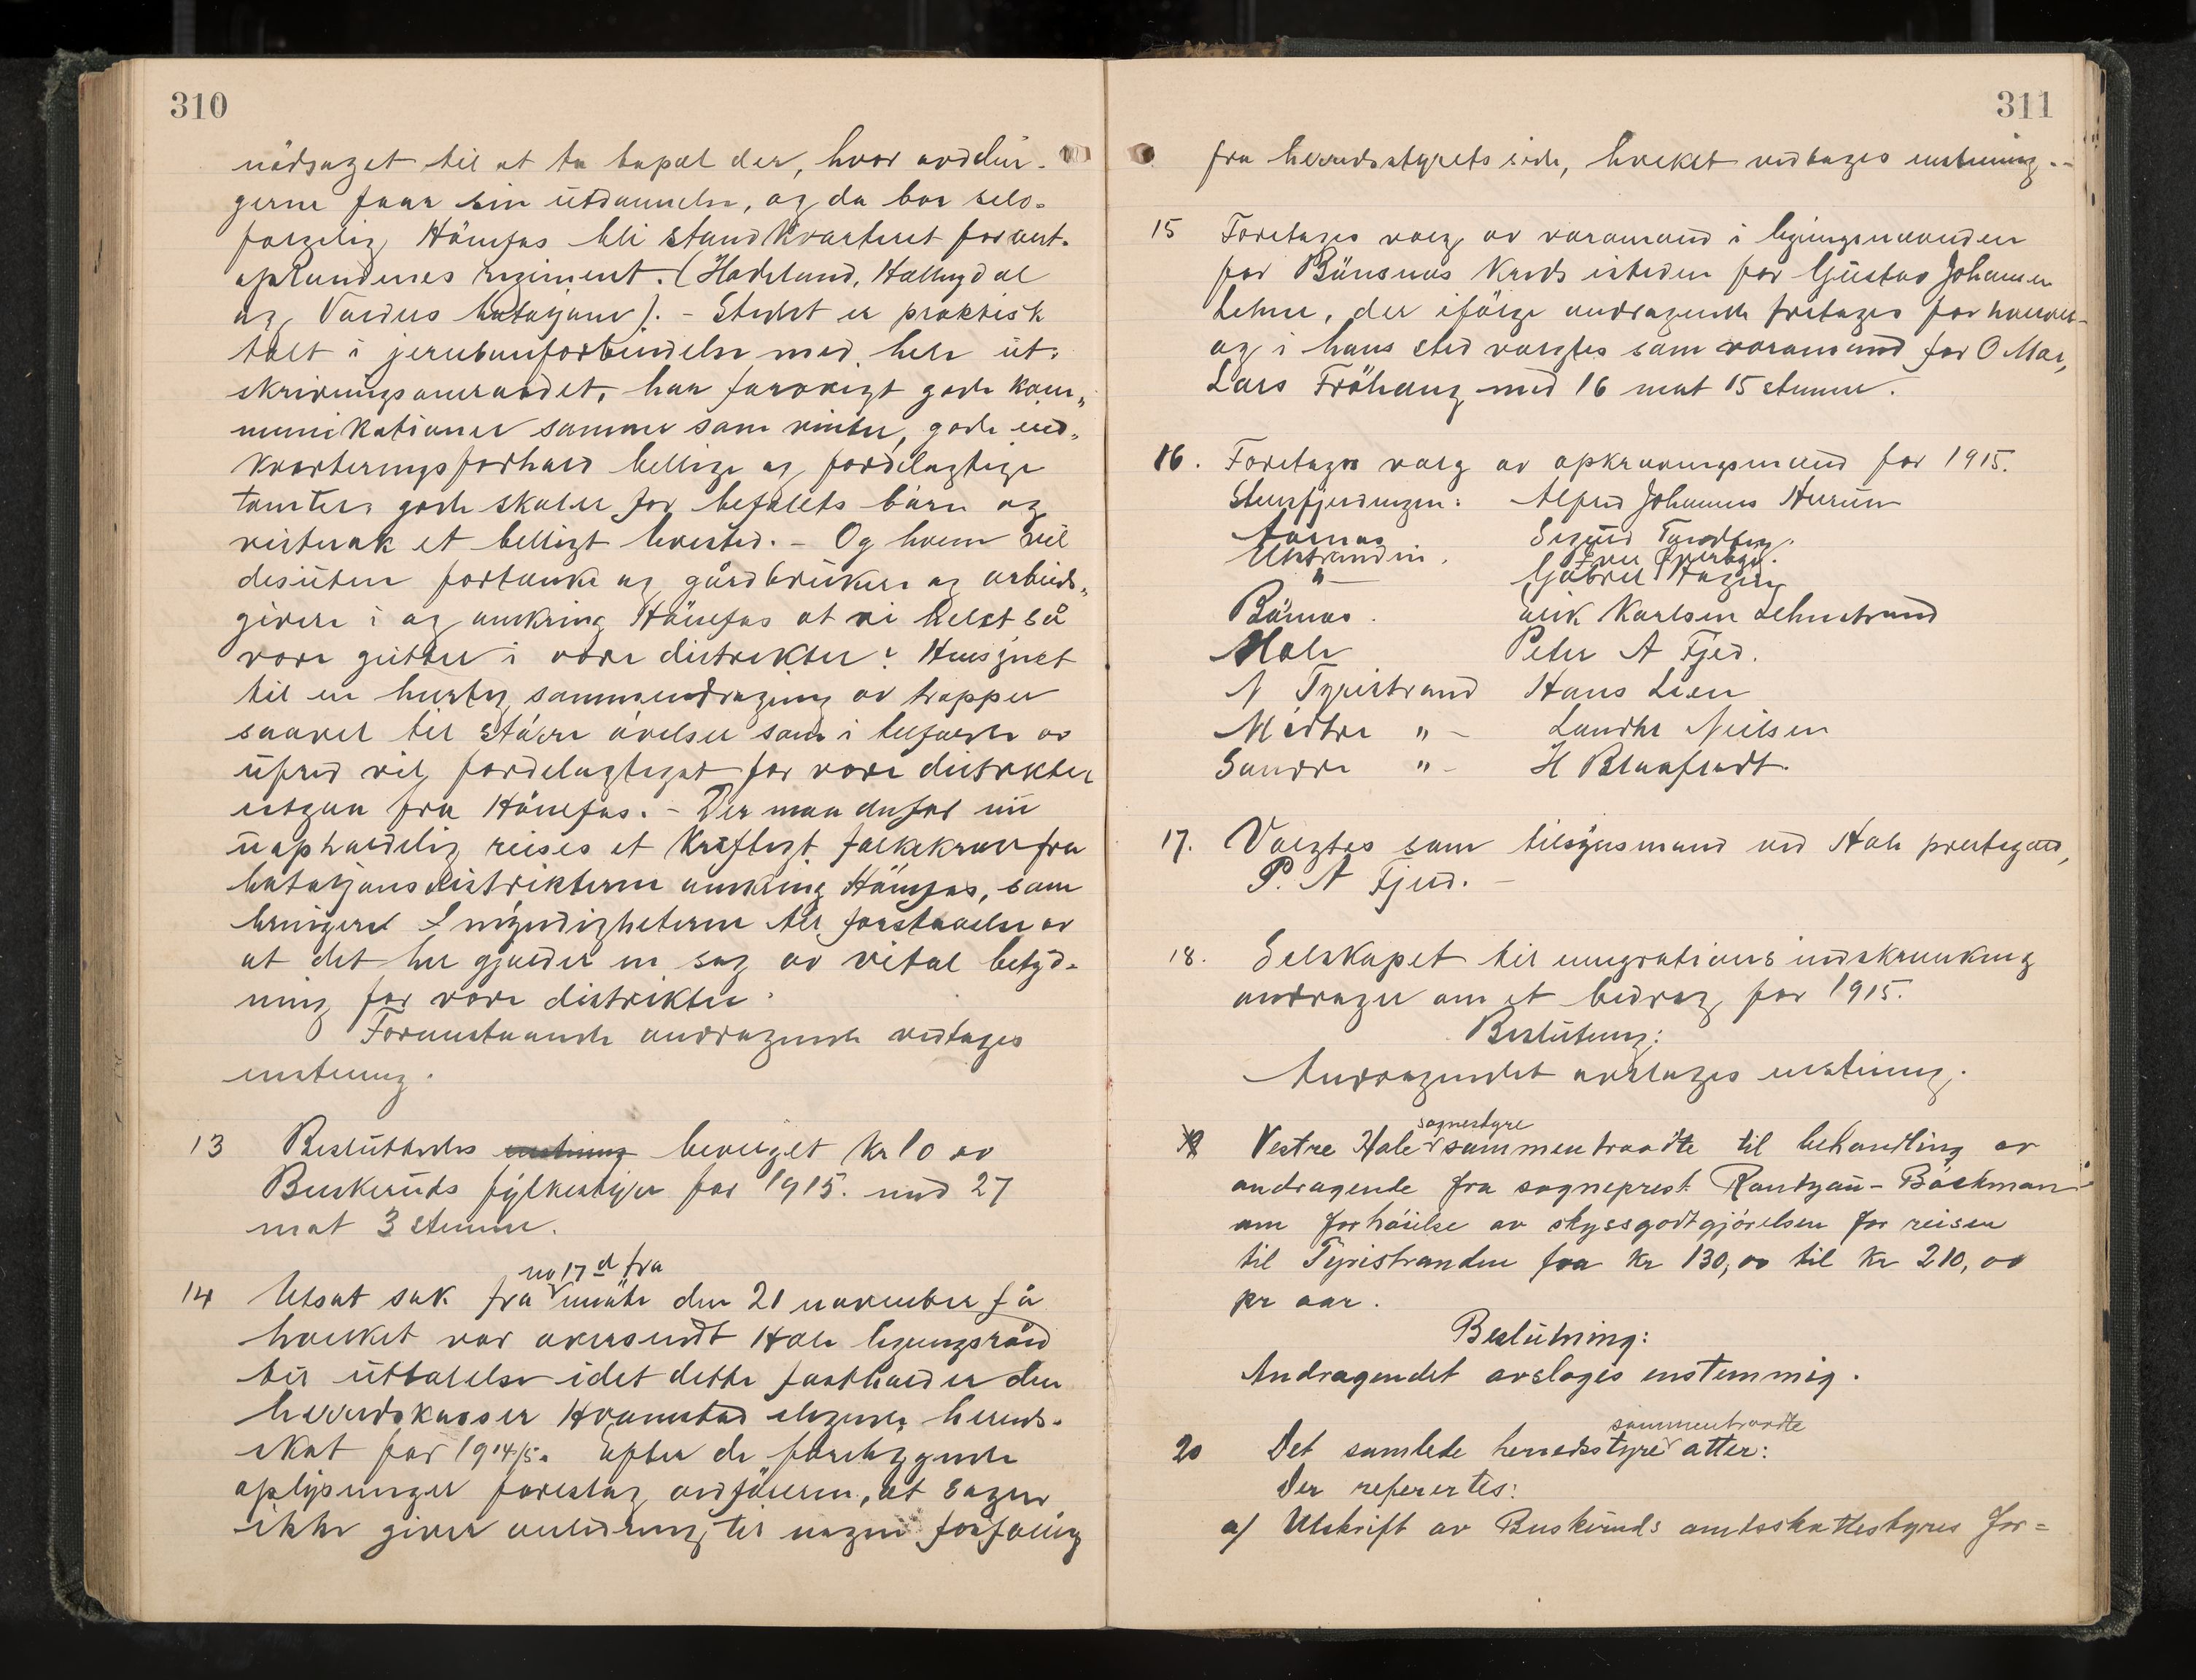 310
nödsaget til at ta bopæl der, hvor avdelin-
gerne faar sin utdannelse, og da bør selv-
følgelig Hönefos bli standkvarteret for vest-
oplandenes regiment. (Hadeland, Hallingdal
og Valdres bataljoner). - Stedet er praktisk
talt i jernbaneforbindelse med hele ut-
skrivningsomraadet, har forövrigt gode kom-
munikationer sommer som vinter, gode ind-
kvarteringsforhold billige og fordelagtige
tomter, gode skoler for befalets børn og
vistnok et billigt levested. - Og hvem vil
desuten fortænke os gårdbrukere og arbeids-
givere i og omkring Hönefos at vi helst så
vore gutter i vore distrikter? Hensynet
til en hurtig sammendragning av tropper
saavel til större övelser som i tilfælde av
ufred vil fordelagtigst for vore distrikter
utgaa fra Hönefos. - Der maa derfor nu
uopholdelig reises et kraftigt folkekrav fra
bataljonsdistrikterne omkring Hönefos, som
bringer myndigheterne til forstaaelse av
at det her gjælder en sag av vital betyd-
ning for vore distrikter.
Foranstaaende andragende vedtages
enstemmig.
13 Besluttedes enstemmig bevilget kr 10 av
Buskeruds fylkestyre for 1915. med 27
mot 3 stemmer.
no 17 d fra
14 Utsat sak fra møte den 21 november få
hvilket var oversendt Hole ligningsråd
til uttalelse idet dette fastholder den
herredskasser Hvamstad ilignede herreds-
skat for 1914/15. Efter de foreliggende
oplysninger foreslog ordföreren, at sagen
ikke giver anledning til nogen forföining
311
fra herredsstyrets side, hvilket vedtages enstemmig. -
15 Foretages valg av varamand i ligningsnævnden
for Bönsnes kreds istedenfor Gustav Johannesen
Lehne, der ifölge andragende fritages for hvervet
og i hans sted valgtes som varamand for O Moe,
Lars Fröhaug med 16 mot 15 stemmer.
16. Foretages valg av opkrævningsmænd for 1915.
Stensfjerdingen: Alfred Johannes Hurum
Aasnes Sigurd Tandberg.
Utstranden. Gabriel Hagen
" -
Bönsnes. Erik Karlsen Lehnestrand
Hole Peter A Fjeld.
N Tyristrand Hans Lien
Midtre " - Landhr Nielsen
Söndre " - H Blaafladt.
17. Valgtes som tilsynsmand ved Hole prestegaard,
P. A Fjeld. -
18. Selskapet til emigrationsindskrænkning
andrager om et bidrag for 1915.
Beslutning:
Andragendet avslages enstemmig.
sognestyre
19 Vestre Hole sammentraadte til behandling av
andragende fra sogneprest Rantzau-Böckman
om forhöielse av skyssgodtgjörelsen for reisen
til Tyristranden fra kr 130,00 til kr 210,00
pr aar.
Beslutning:
Andragendet avsloges enstemmig.
sammentraadte
20 Det samlede herredsstyre atter:
Der refereretes:
a/ Utskrift av Buskeruds amtsskattestyres for=